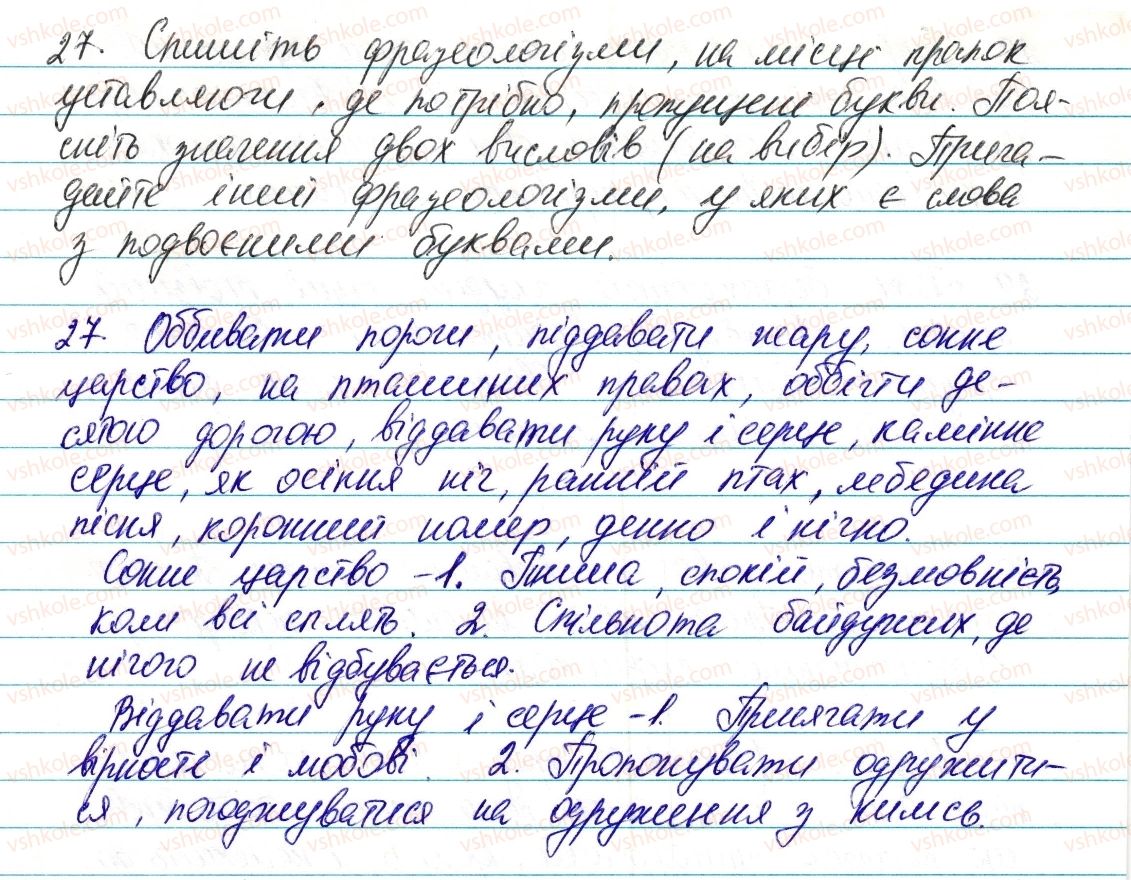 27. Спишіть фразеологізми, на місці крапок
уставляючи, де потрібно, пропущені букви. Поя-
сніть значення двох висловів (на вибір). Прига-
дайте інші фразеологізми, у яких є слова
з подвоєними буквами.
27. Оббивати пороги, піддавати жару, сонне
царство, на пташиних правах, оббігти де-
сятою дорогою, віддавати руку і серце, камінне
серце, як осіння ніч, ранній птах, лебедина
пісня, коронний номер, денно і нічно.
Сонне царство – 1. Тиша, спокій, безмовність,
коли всі сплять. 2. Спільнота байдужих, де
нічого не відбувається.
Віддавати руку і серце – 1. Присягати у
вірності і любові. 2. Пропонувати одружити-
ся, погоджуватися на одруження з кимсь.
vshkole.com